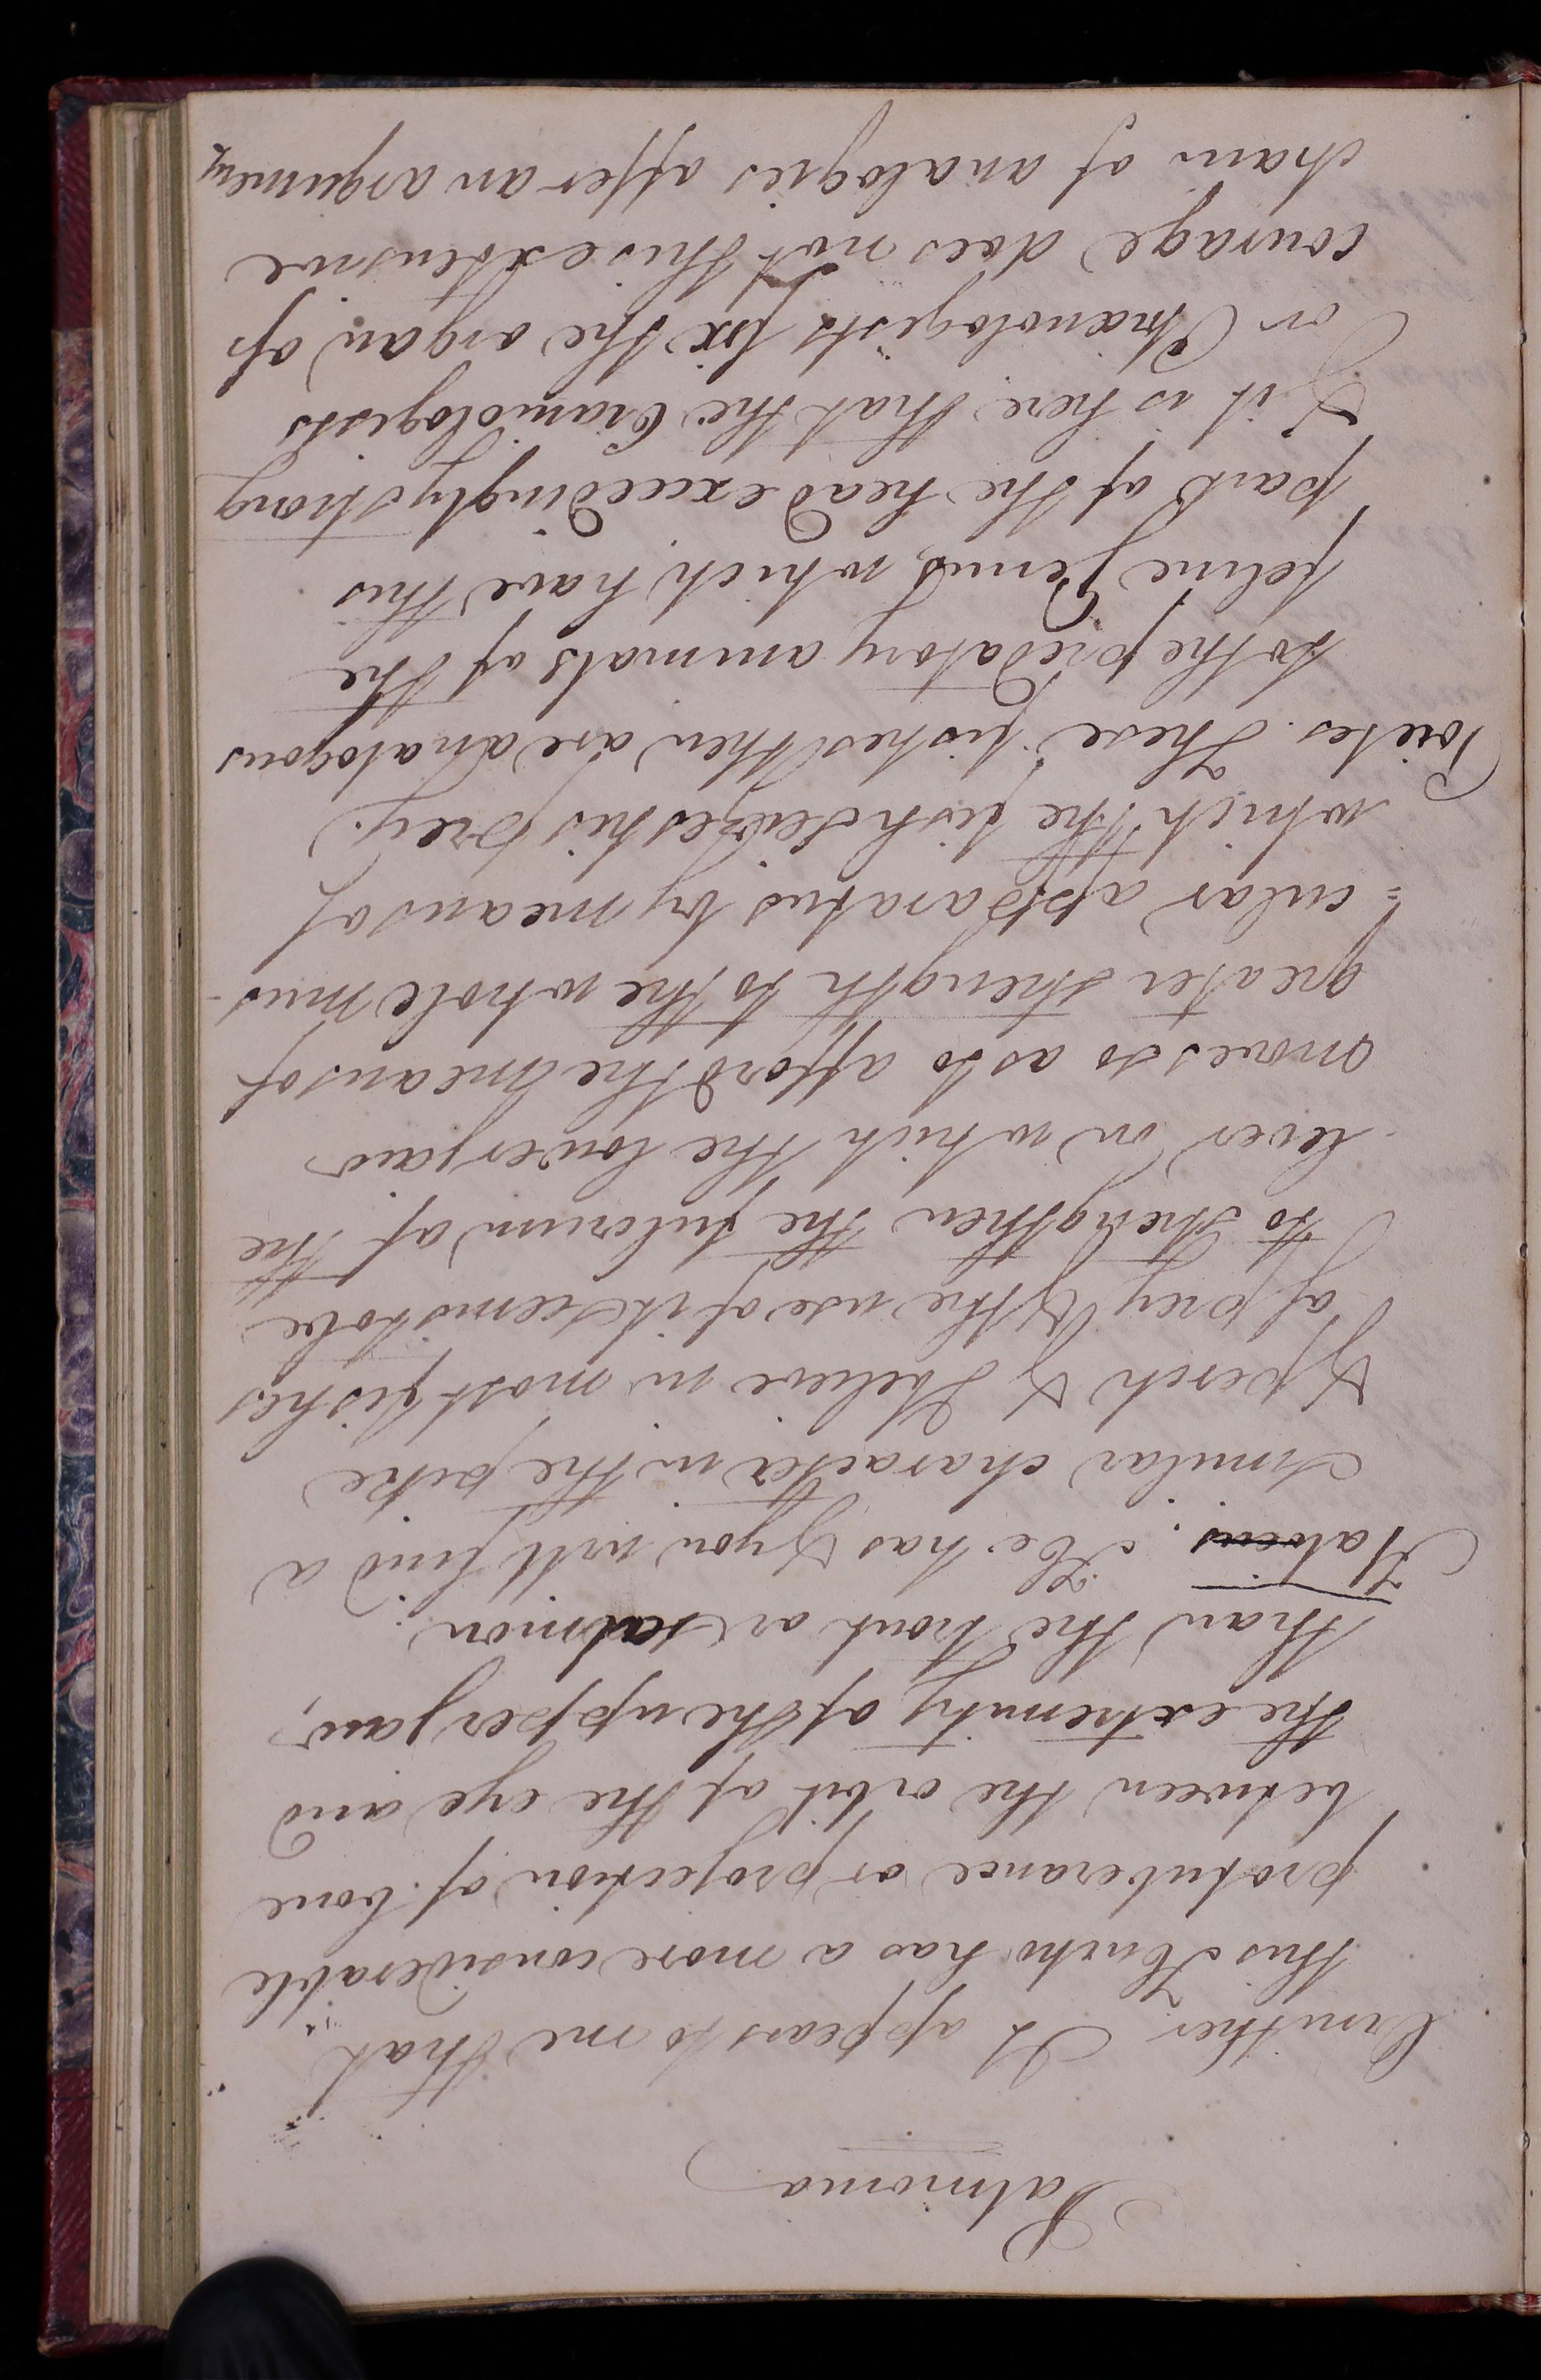 Salmonia
Ornither It appears to me that
this Hucho has a more considerable
protuberance or projection of bone
between the orbit of the eye and
the extremity of the upper jaw,
than the trout or salmon.
Halieus. He has & you will find a
similar character in the pike
& perch & I believe in most fishes
of prey & the use of it seems to be
to strengthen the fulcrum of the
lever on which the lower jaw
moves so as to afford the means of
greater strength to the whole mus-
=cular apparatus by means of
which the fish seizes his prey.
Poietes. These fishes then are analogous
to the predatory animals of the
feline genus, which have this
part of the head exceedingly strong
& it is here that the Craniologists
or Phrænologists fix the organ of
courage does not this extensive
chain of analogies offer an argument